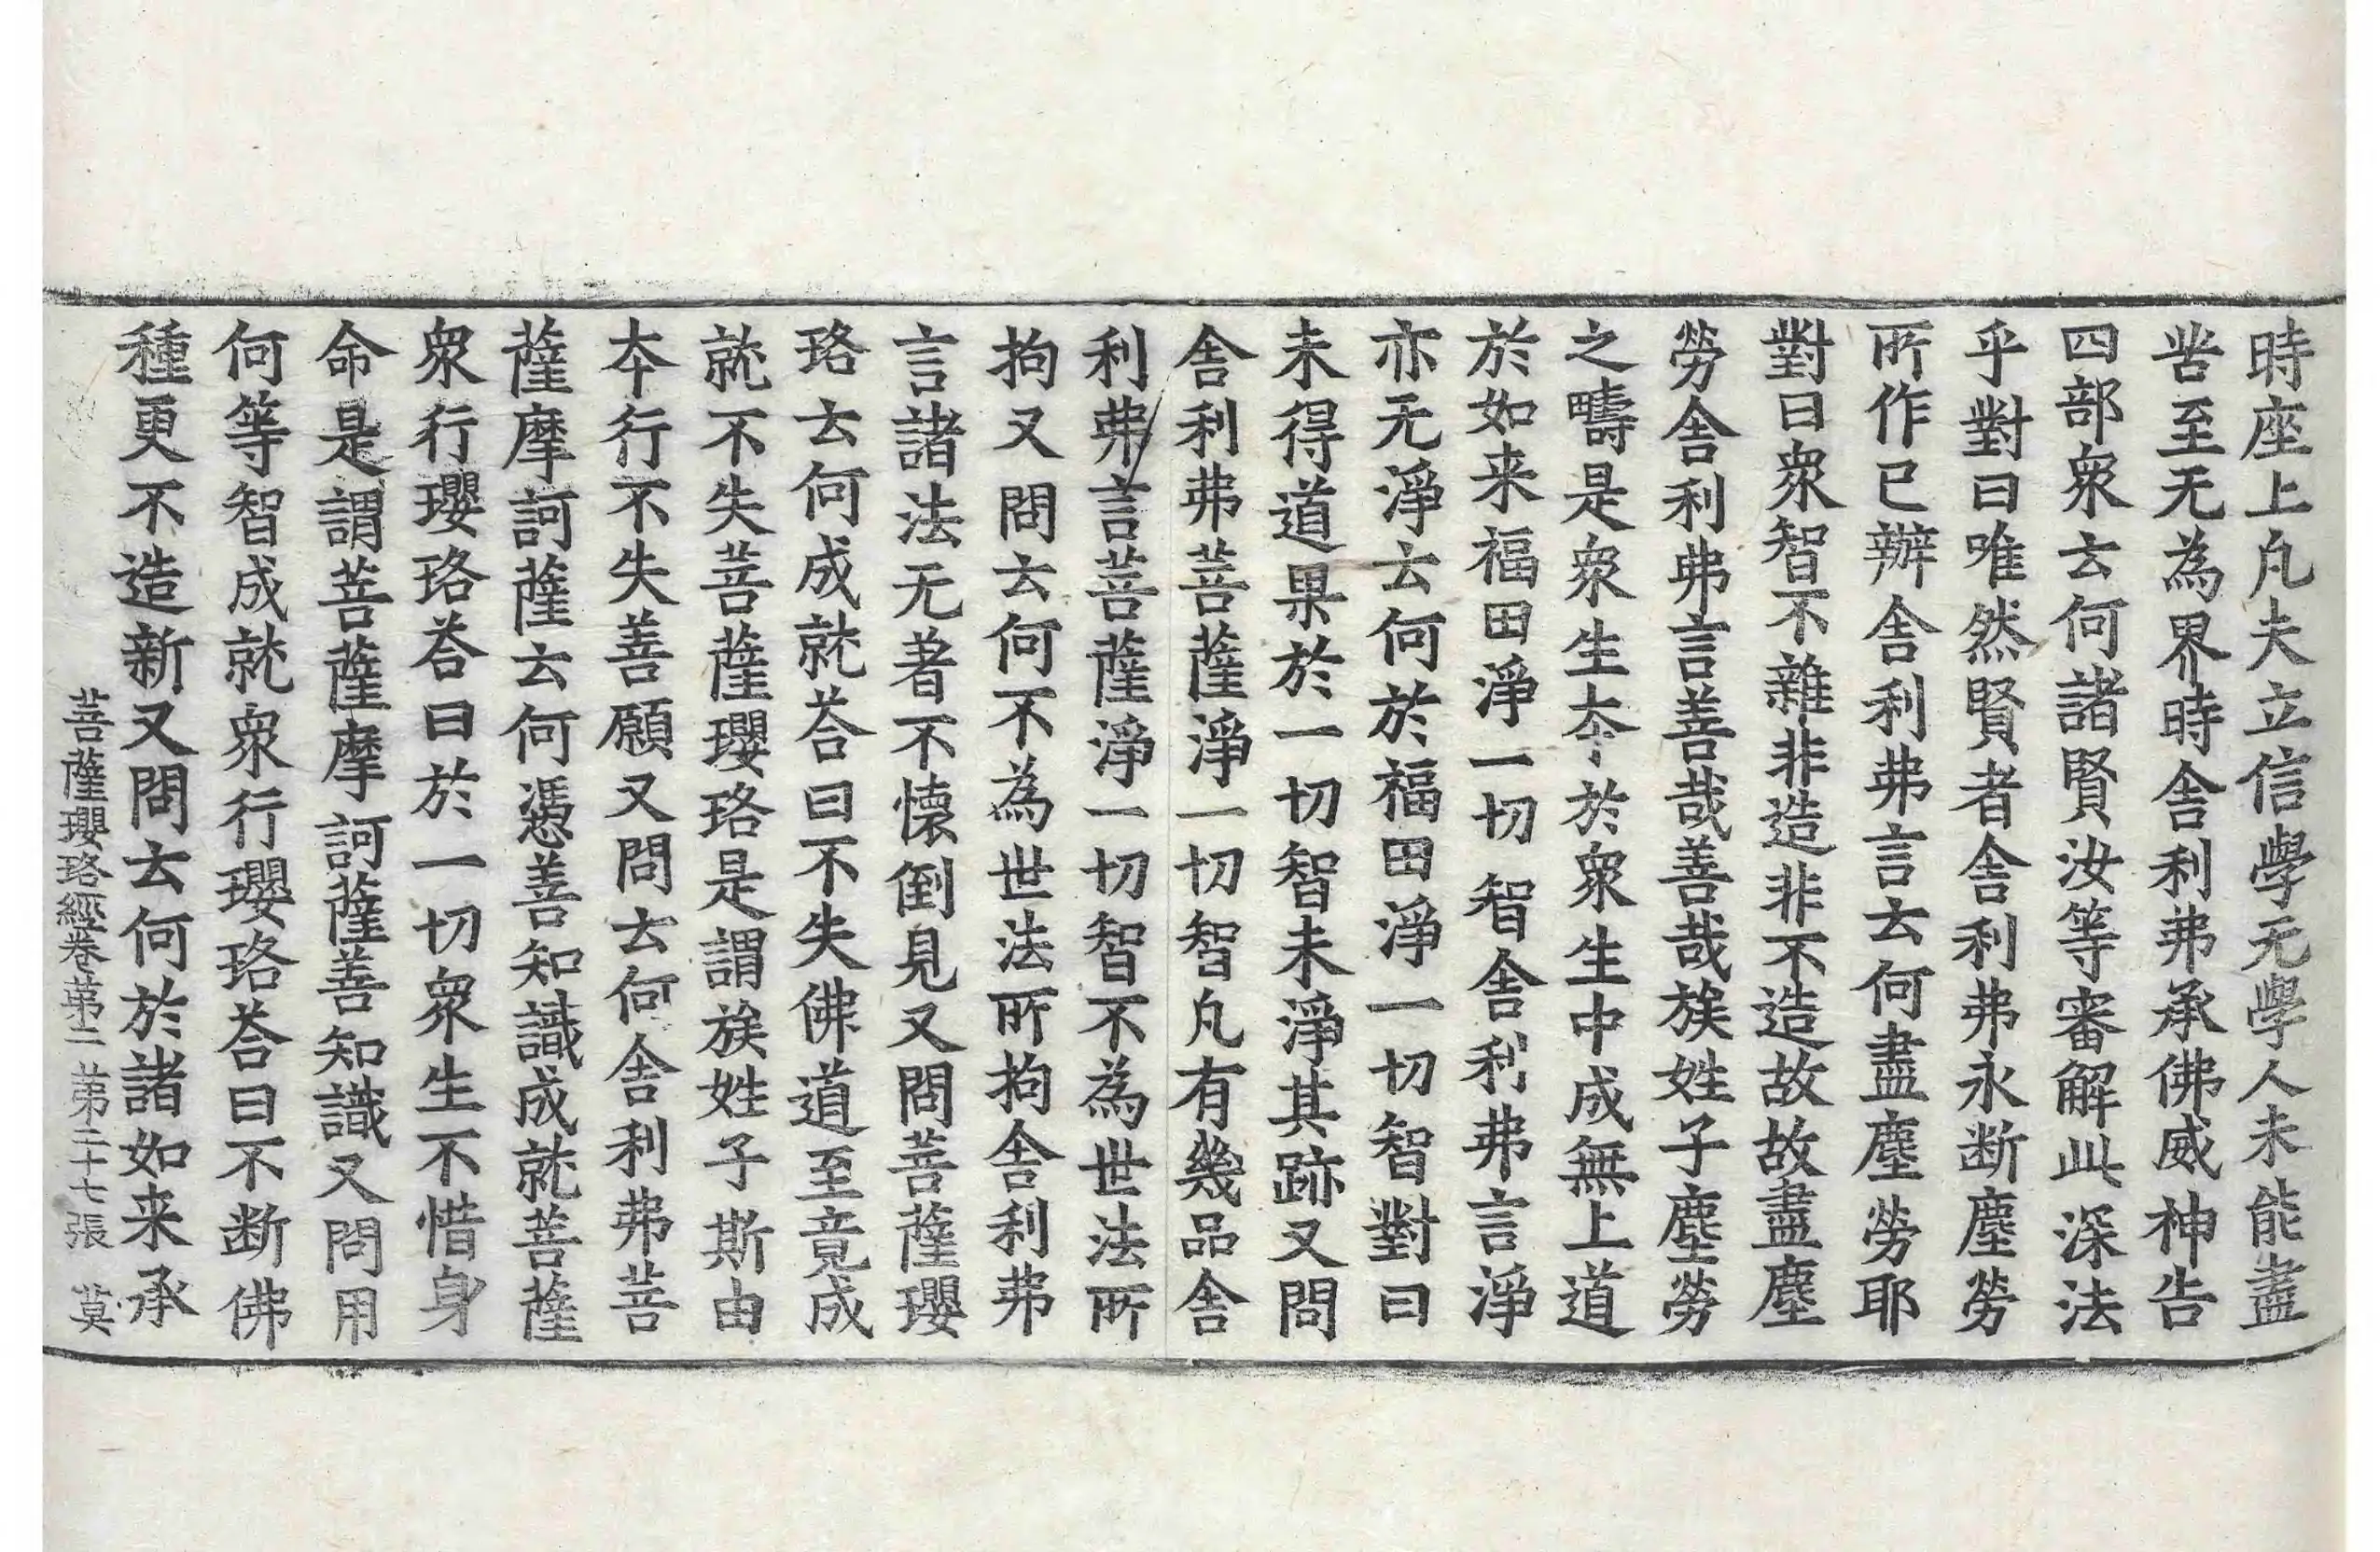 時座上凡夫立信學无學人未能盡
苦至无為界時舍利弗承佛威神告
四部衆云何諸賢汝等審解此深法
乎對曰唯然賢者舍利弗永断塵勞
所作已辦舍利弗言云何盡塵勞耶
對曰衆智不雜非造非不造故故盡塵
勞舍利弗言善哉善哉族姓子塵勞
之疇是衆生夲於衆生中成無上道
於如来福田淨一切智舍利弗言淨
亦无淨云何於福田淨一切智對曰
未得道果於一切智未淨其跡又問
舍利弗菩薩淨一切智凡有幾品舍
利弗言菩薩淨一切智不為世法所
拘又問云何不為世法所拘舍利弗
言諸法无著不懷倒見又問菩薩瓔
珞云何成就荅曰不失佛道至竟成
就不失菩薩瓔珞是謂族姓子斯由
夲行不失善願又問云何舍利弗菩
薩摩訶薩云何憑善知識成就菩薩
衆行瓔珞荅曰於一切衆生不惜身
命是謂菩薩摩訶薩善知識又問用
何等智成就衆行瓔珞荅曰不断佛
種更不造新又問云何於諸如来承
菩薩瓔珞經卷苐二 苐二十七張 莫